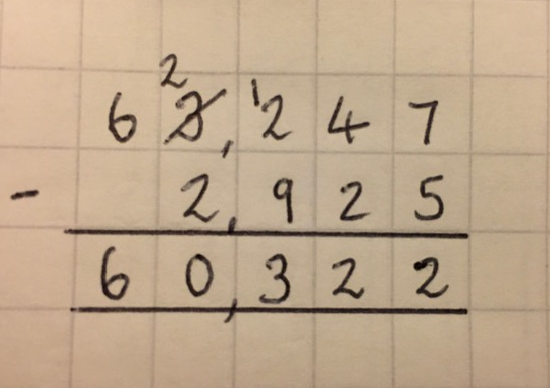 2 1
6 3, 2 4 7
- 2, 9 2 5
6 0, 3 2 2